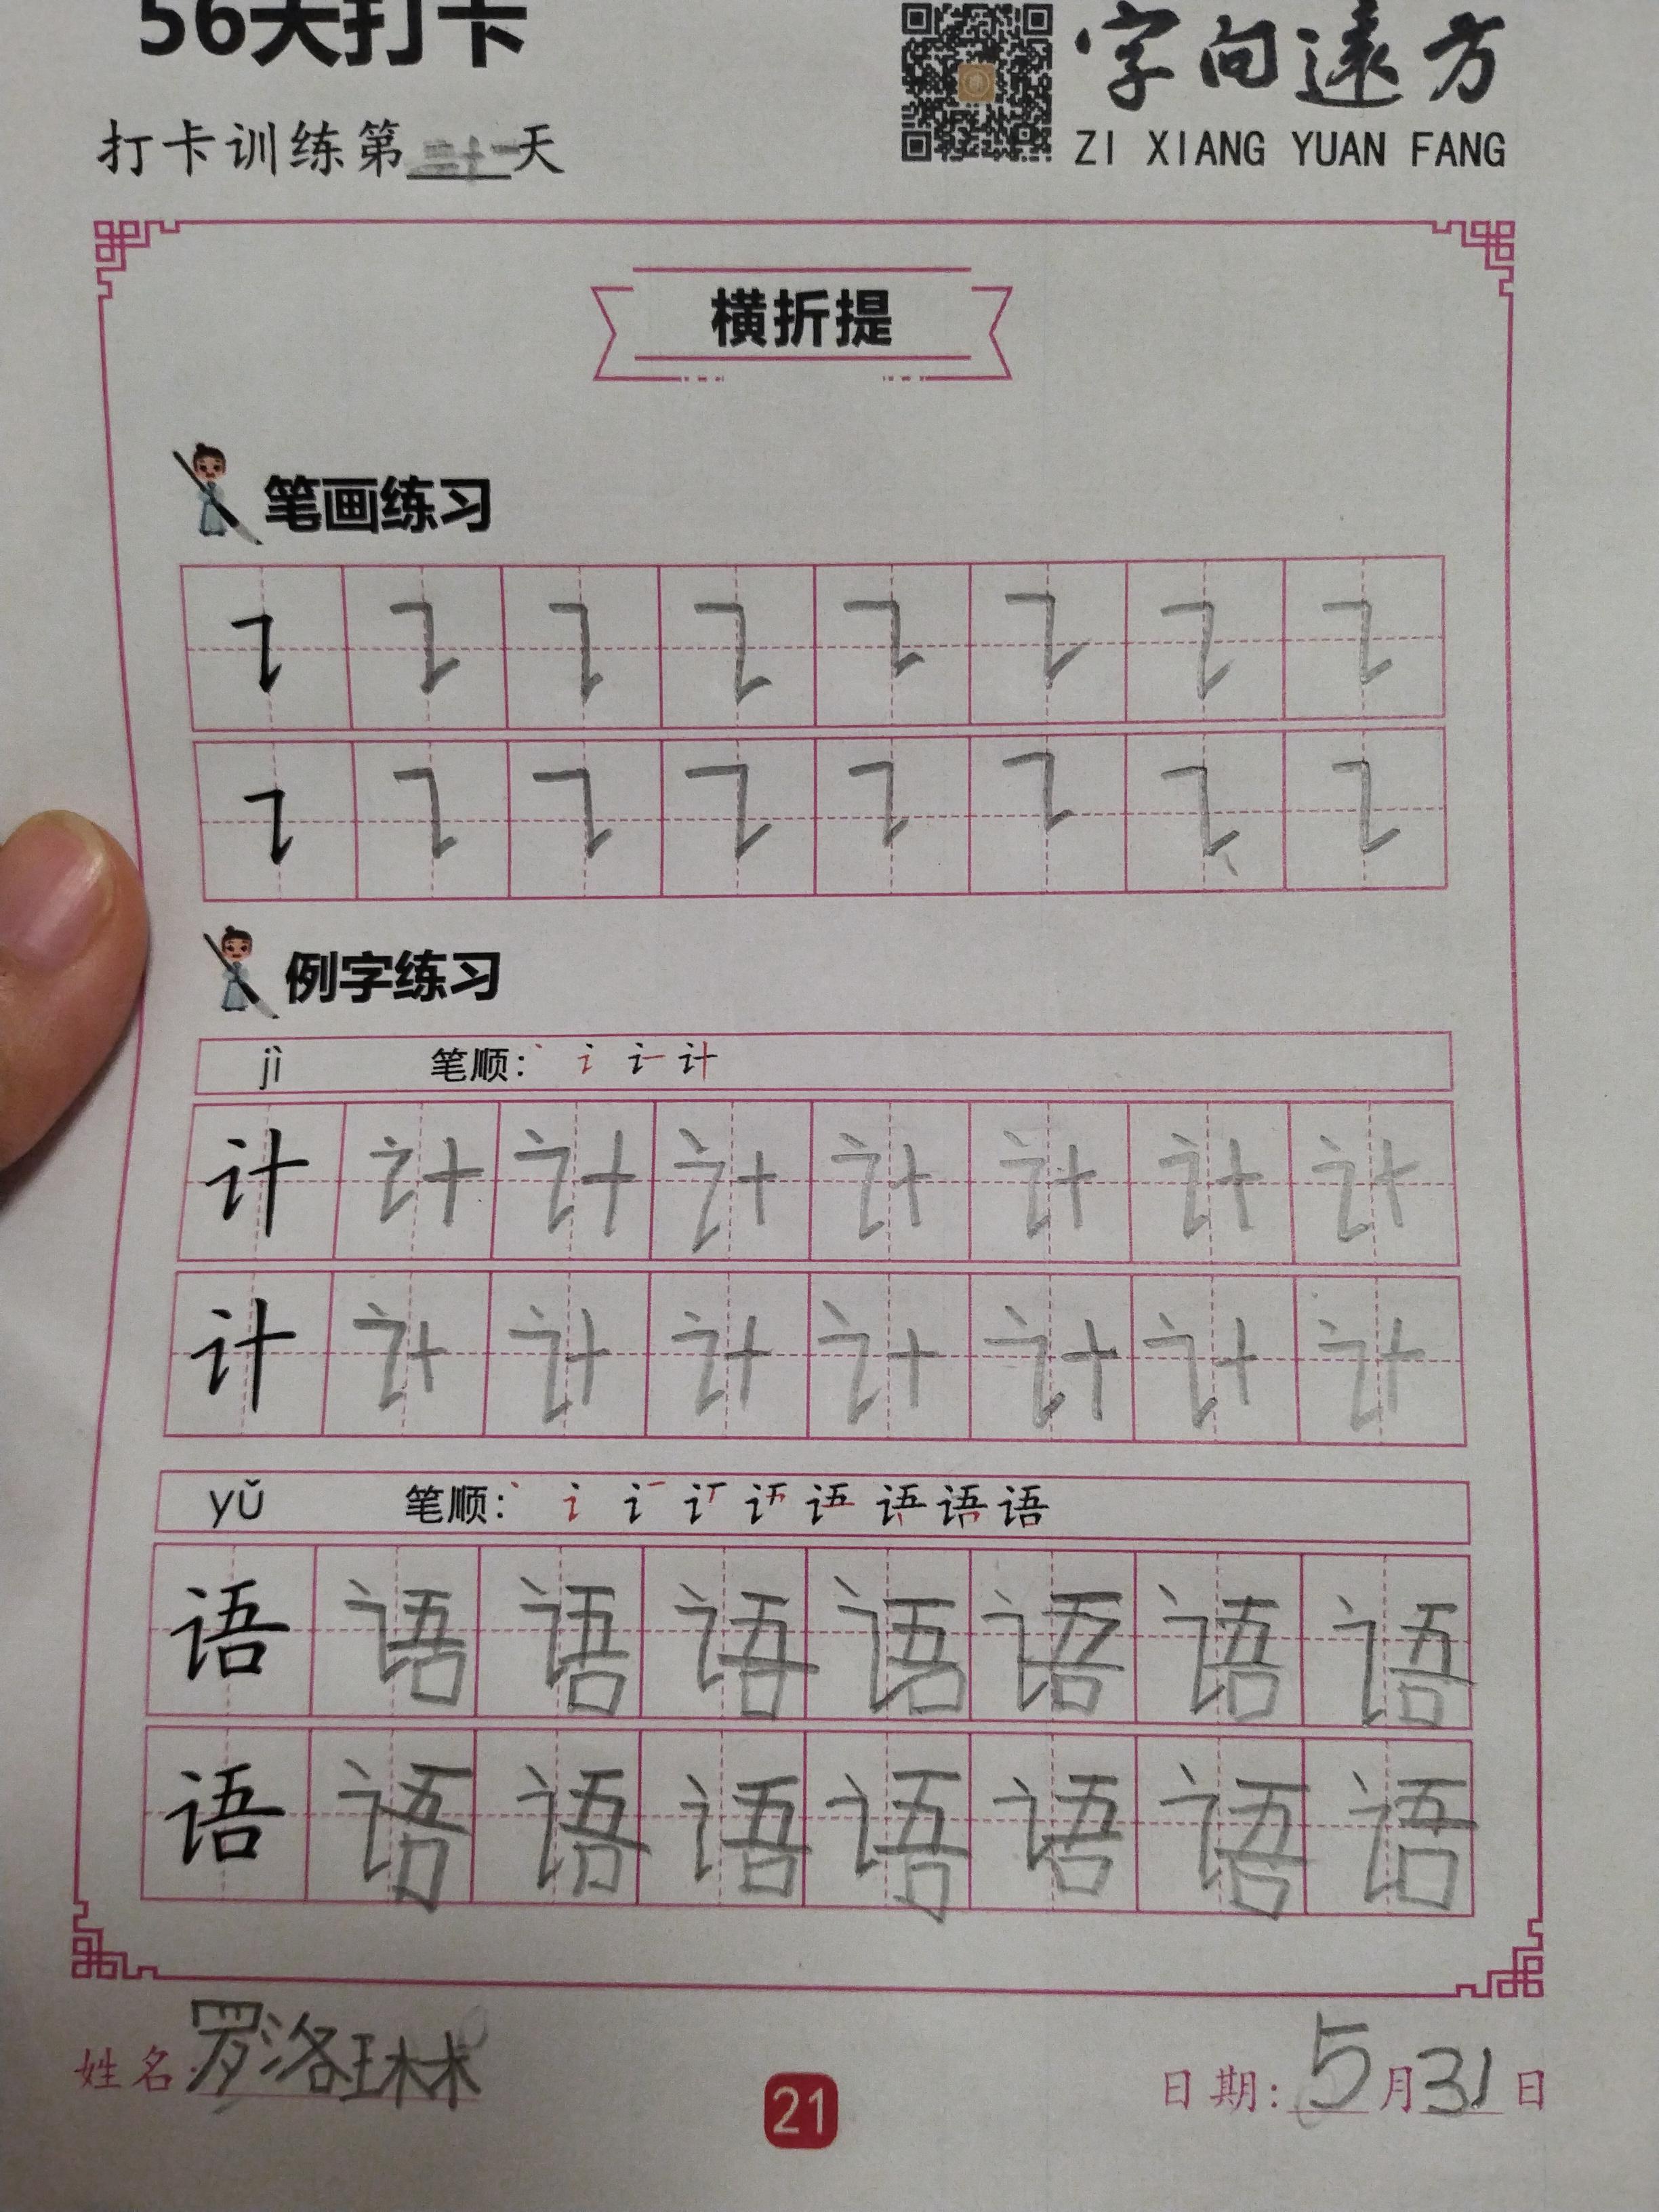 56天打卡
字向遠方
ZI XIANG YUAN FANG
打卡训练第二十一天
横折提
笔画练习
例字练习
jì 笔顺：
计 计 计 计 计 计 计 计
计 计 计 计 计 计 计 计
yǔ 笔顺：
语 语 语 语 语 语 语 语
语 语 语 语 语 语 语 语
姓名：罗洛琳
21
日期：5月31日